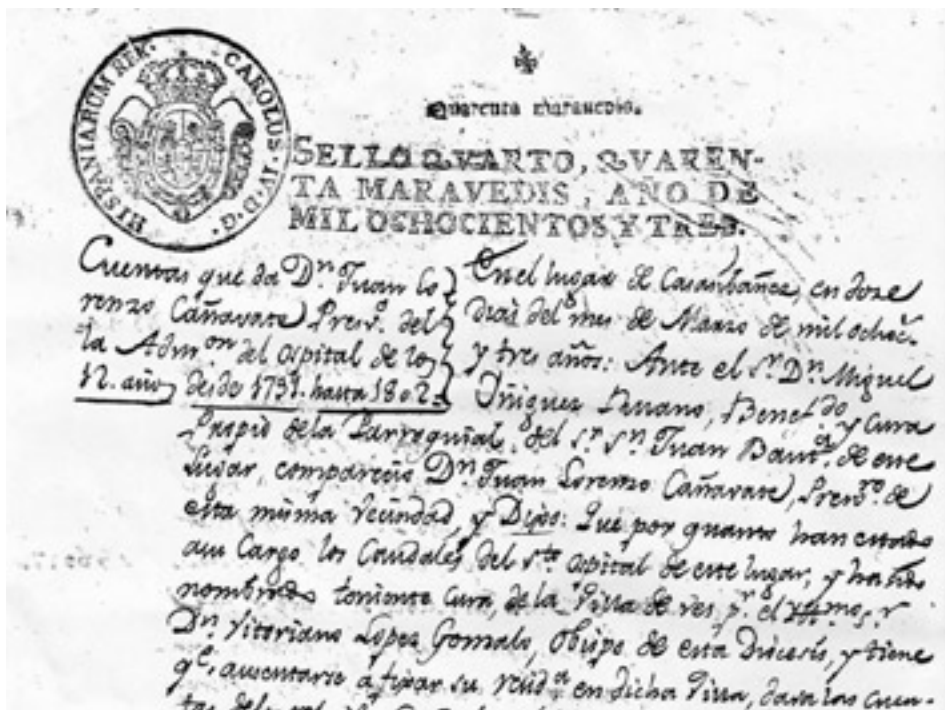 HISPANIARUM REX. CAROLUS.IV.D.G.
Quarenta maravedis.
SELLO QVARTO, QVAREN-
TA MARAVEDIS, AÑO DE
MIL OCHOCIENTOS Y TRES.
Cuentas que da Dn. Juan Lo
renzo Cañavate Presvo. del
la Admon del Ospital de los
12. años desde 1791. hasta 1802.
En el lugar de Casasibañez, en doze
dias del mes de Marzo de mil ochoc.
y tres años: Ante el Sr. Dn. Miguel
Iñiguez Ruano, Benefdo. y Cura
Propio de la Parroquial del Sr. Sn. Juan Bauta. de este
Lugar, comparecio Dn. Juan Lorenzo Cañavate, Presvro de
esta misma Vecindad, y Dijo: Que por quanto han estado
a su Cargo los Caudales del Sto. Ospital de este lugar, y ha sido
nombrado teniente Cura, de la Villa de ves, pr. el Yltmo. Sr.
Dn. Vitoriano Lopez Gonzalo, Obispo de esta Diocesis, y tiene
qe. ausentarse a fixar su resida en dicha Villa, dara las Cuen-
tas del